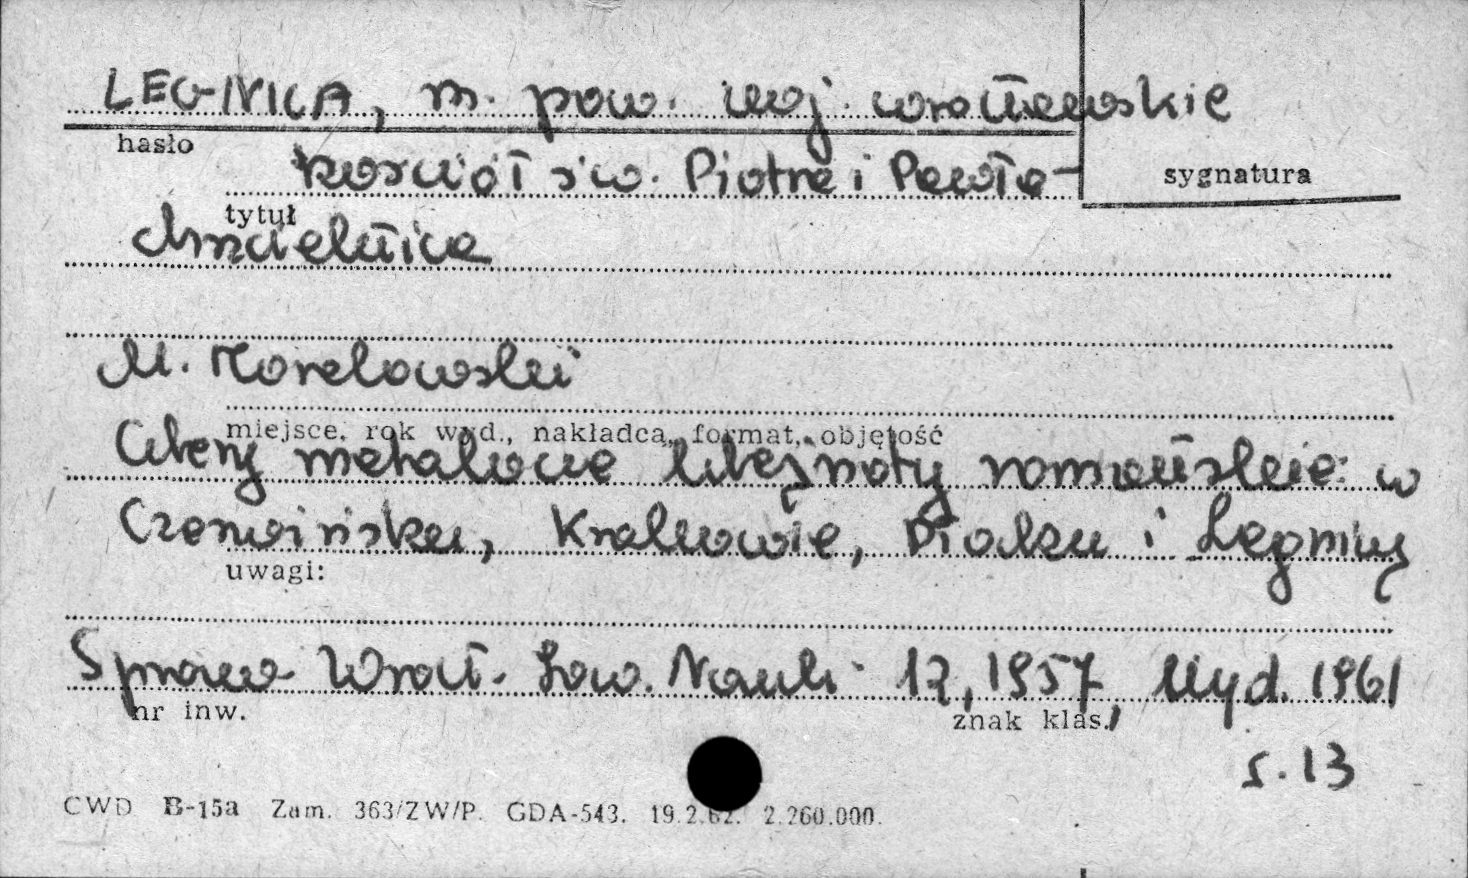 LEGNICA, m. pow. woj. wrocławskie
hasło
kościół św. Piotra i Pawła -
sygnatura
tytuł
chrzcielnica
M. Morelowski
miejsce, rok wyd., nakładca, format, objętość
Cztery metalowe romańskie: w
Czerwińsku, Krakowie, Płocku i Legnicy
uwagi:
Spraw. Wrocł. Tow. Nauk. 12, 1957, Wyd. 1961
nr inw.
znak klas.
s. 13
CWD B-15a Zam. 363/ZW/P. GDA-543. 19.2.62. 2.260.000.